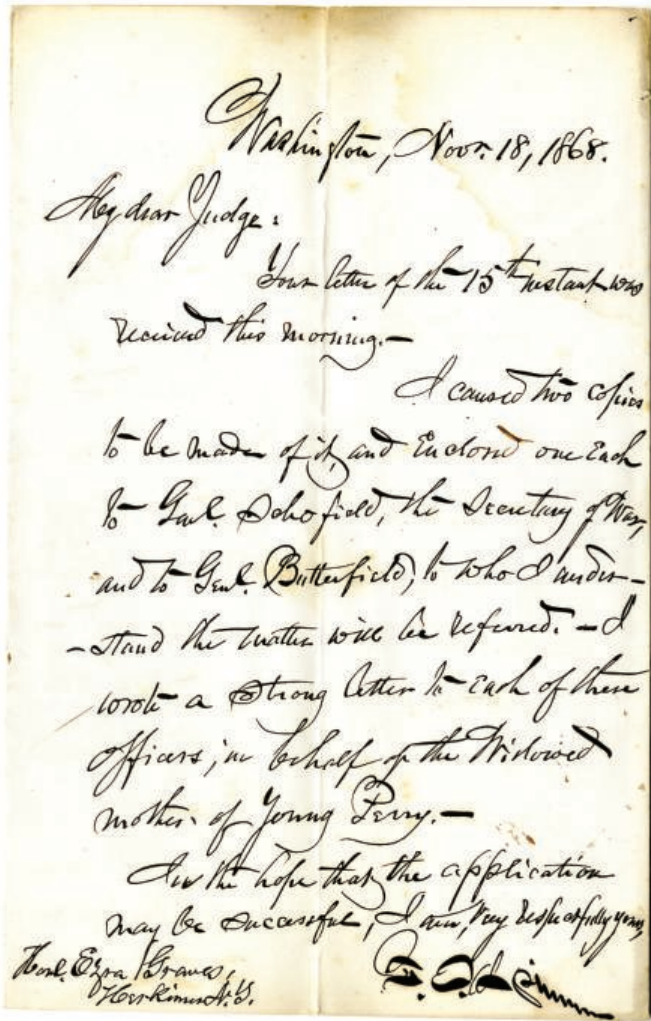 Washington, Novr. 18, 1868.
My dear Judge:
Your letter of the 15th instant was
received this morning.—
I caused two copies
to be made of it, and Enclosed one Each
to Genl. Schofield, the Secretary of War,
and to Genl. Butterfield, to who I under-
-stand the matter will be referred. — I
wrote a strong letter to each of these
officers, in behalf of the Widowed
mother of Young Perry.—
In the hope that the application
may be successful, I am, Very respectfully yours,
Honl. Ezra Graves,
Herkimer N.Y.